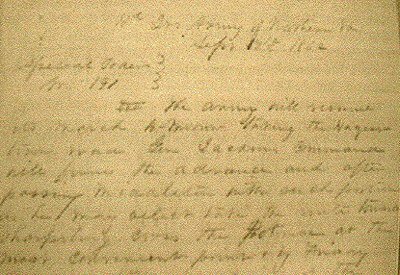 Hd Qrs Army of Northern Va
Sept 9th 1862
Special Orders }
No. 191 }
III The army will resume
its march to-morrow taking the Hagerstown
road. Gen Jackson's Command
will form the advance and after
passing Middletown with such portion
as he may select take the route toward
Sharpsburg cross the Potomac at the
most convenient point & by Friday